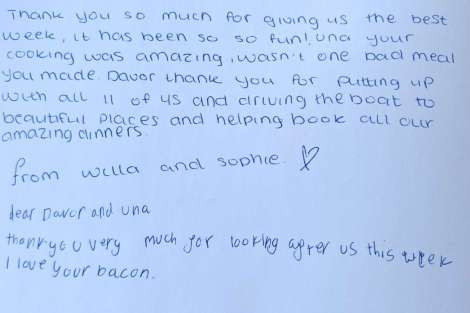 Thank you so much for giving us the best
week, it has been so so fun! una your
cooking was amazing, wasn't one bad meal
you made. Davor thank you for putting up
with all 11 of us and driving the boat to
beautiful places and helping book all our
amazing dinners.
from willa and sophie. ♡
dear Davor and una
thank you very much for looking after us this week
I love your bacon.